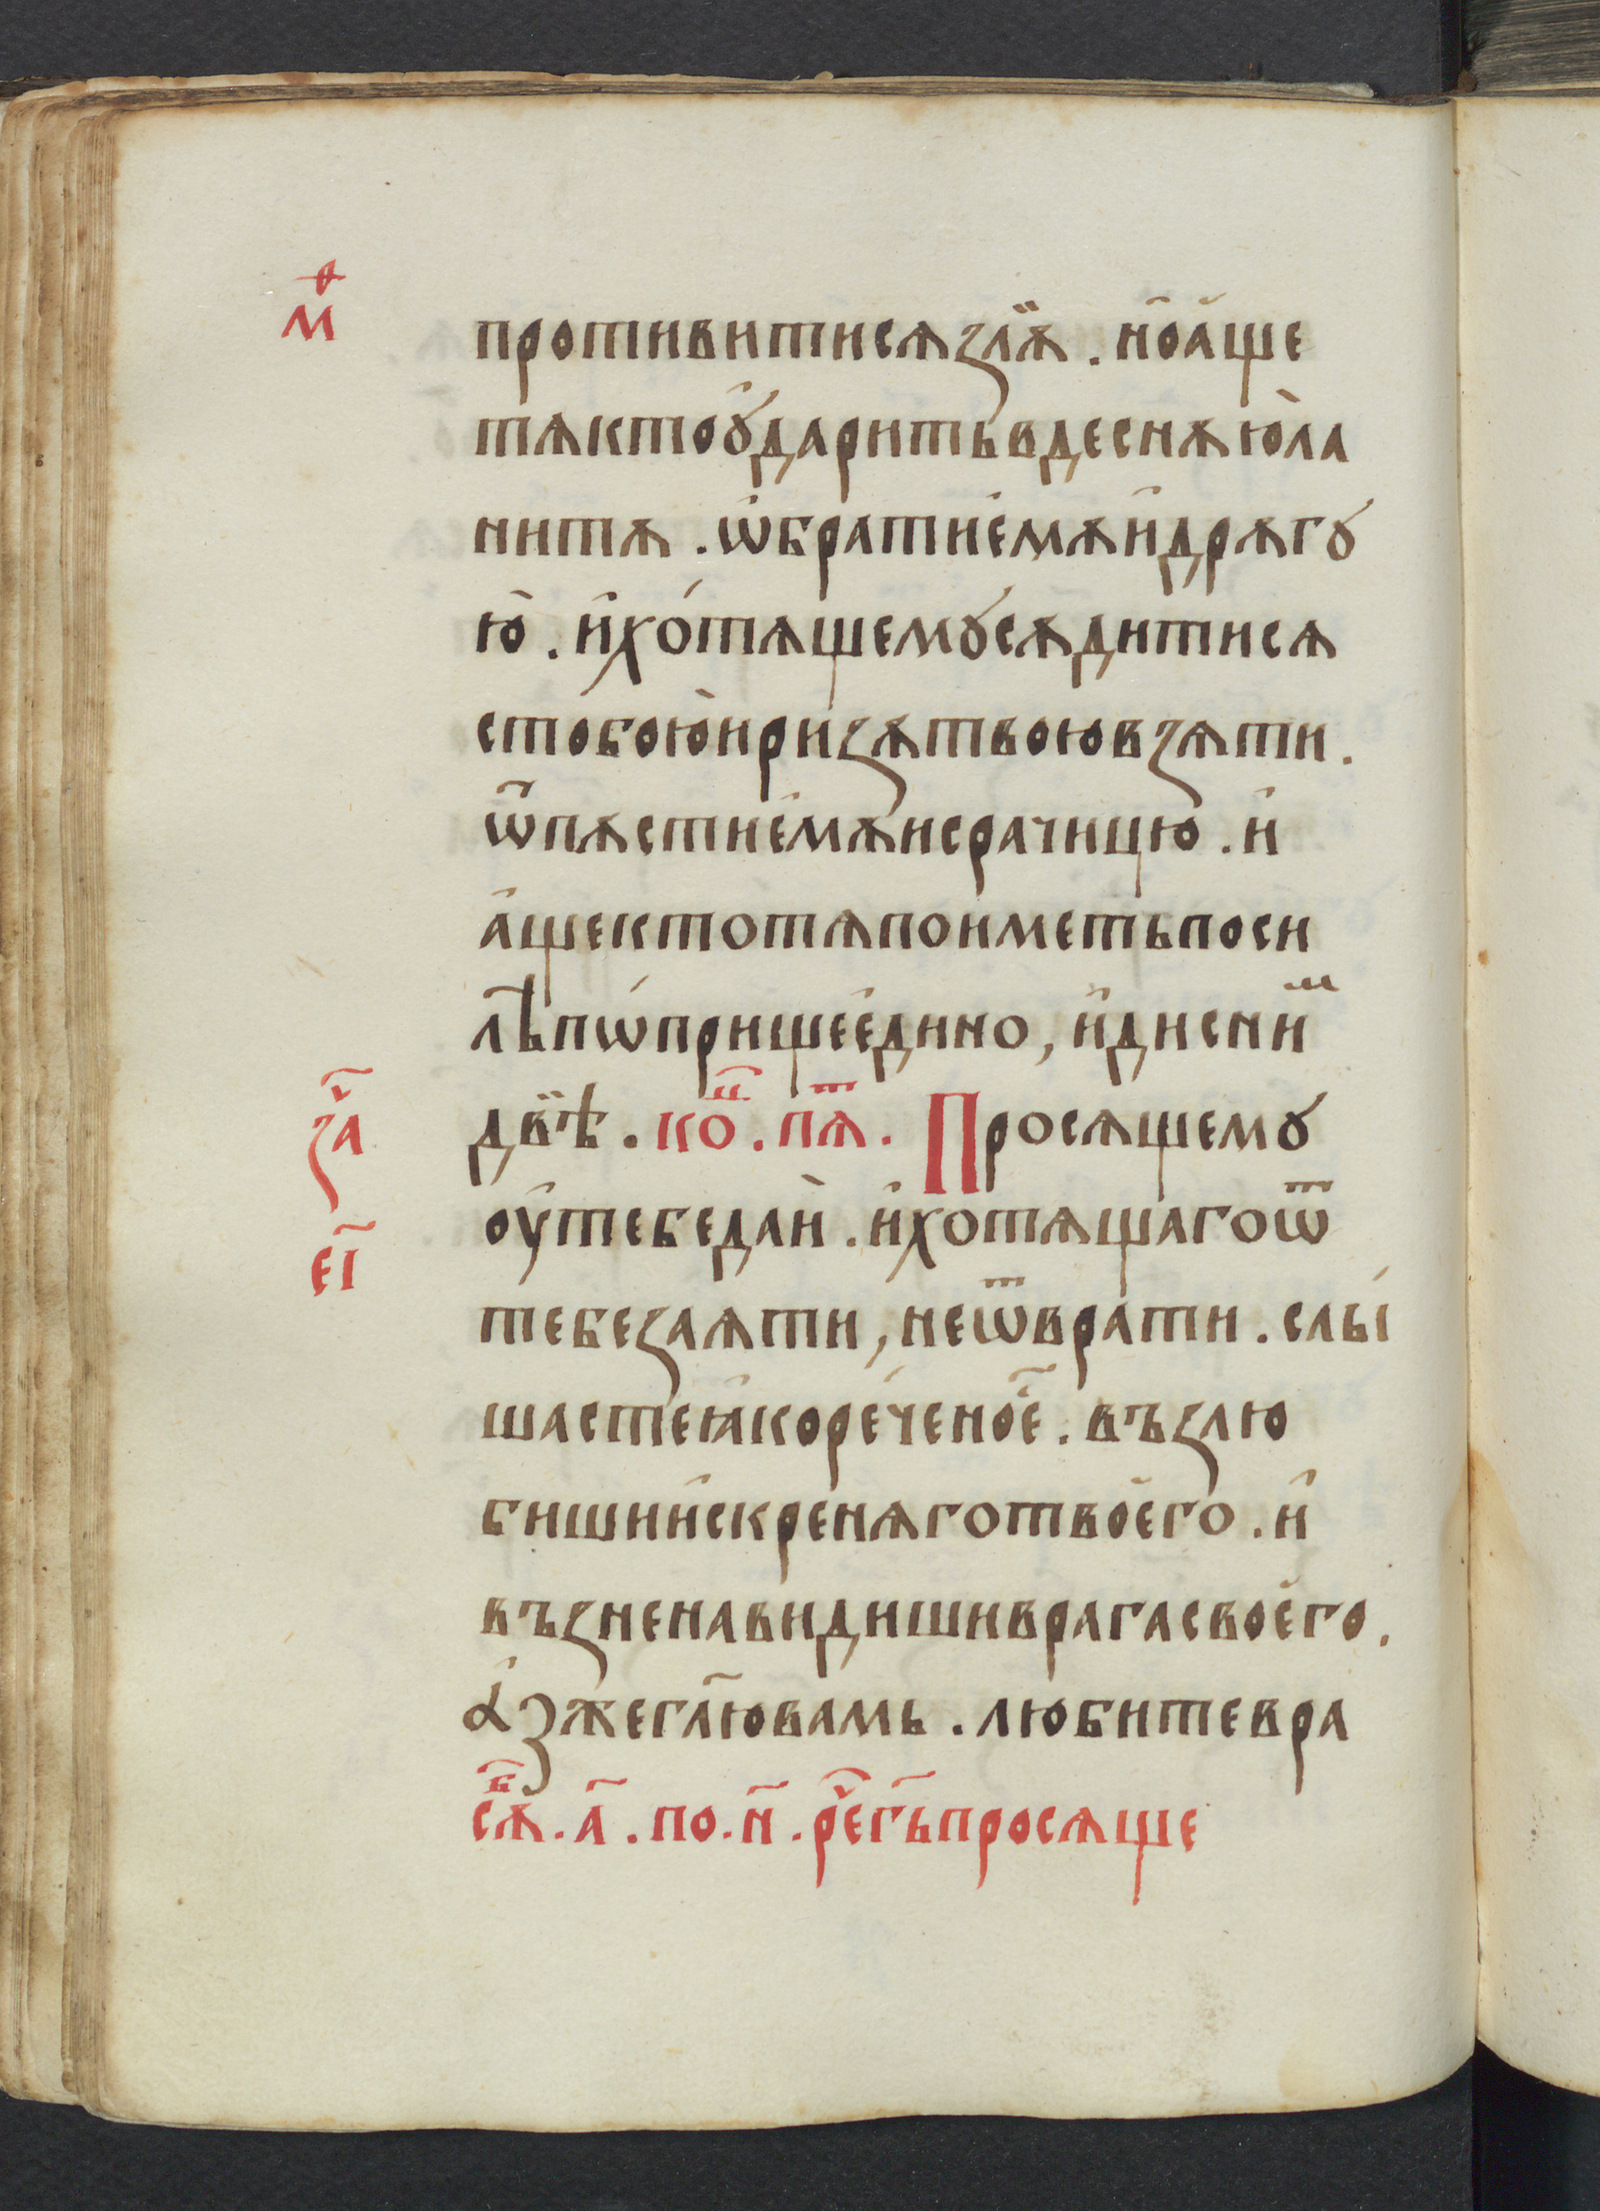 мѳ
противитисѧ злѫ . нѡ аще
тѧ кто ѹдарить в десноую ла
нитѫ . ѡбрати емѫ и дрѫгꙋ
ю . и хотѧщемꙋ сѫдитисѧ
с тобою и ризѫ твою взѧти .
ѿпѫсти емѫ и срачицю . и
аще кто тѧ поиметь по си
лѣ пѡприще едино , иди с ни
двѣ . ко҃ц . пѧ҃т . Просѧщемꙋ
за҃ч
оу тебе даи . и хотѧщаго ѿ
е҃і
тебе заѧти , не ѿврати . слы
шасте ꙗко речено е҃ . възлю
биши искренѧго твоего . и
възненавидиши врага своего .
аз же гл҃ю вамь . любите вра
сѫ҃б . а҃ . по . н҃ . ре҃ч гь҃ просѧще